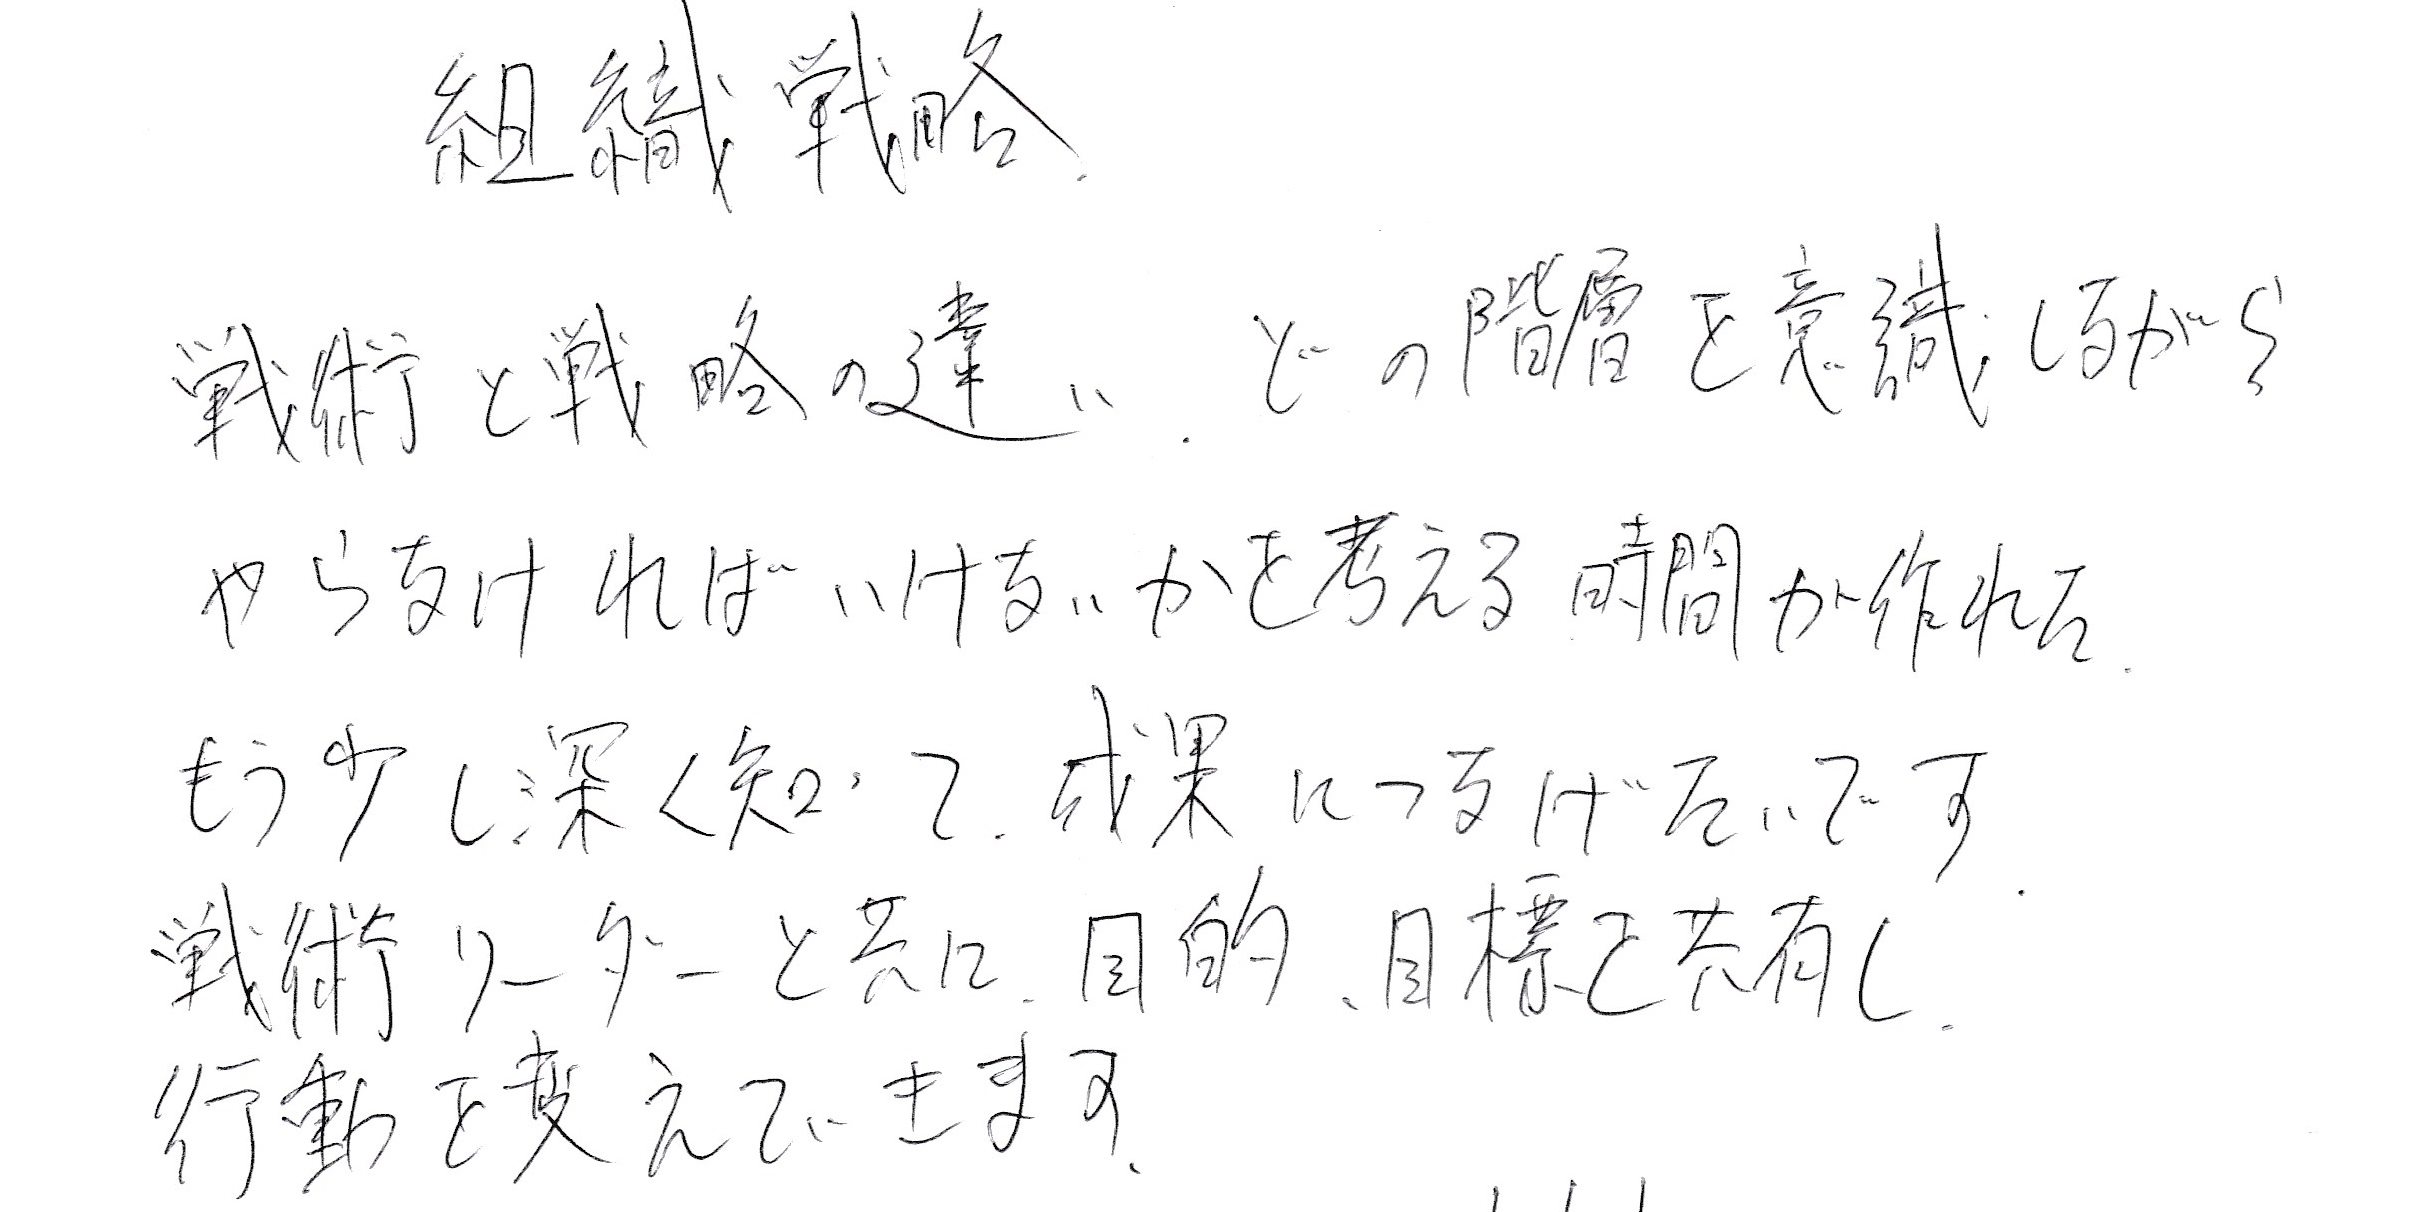 組織戦略.
戦術と戦略の違い.どの階層を意識しながら
やらなければいけないかを考える時間が作れた.
もう少し深く知って.成果につなげたいです.
戦術リーダーと共に.目的、目標を共有し.
行動を変えていきます.